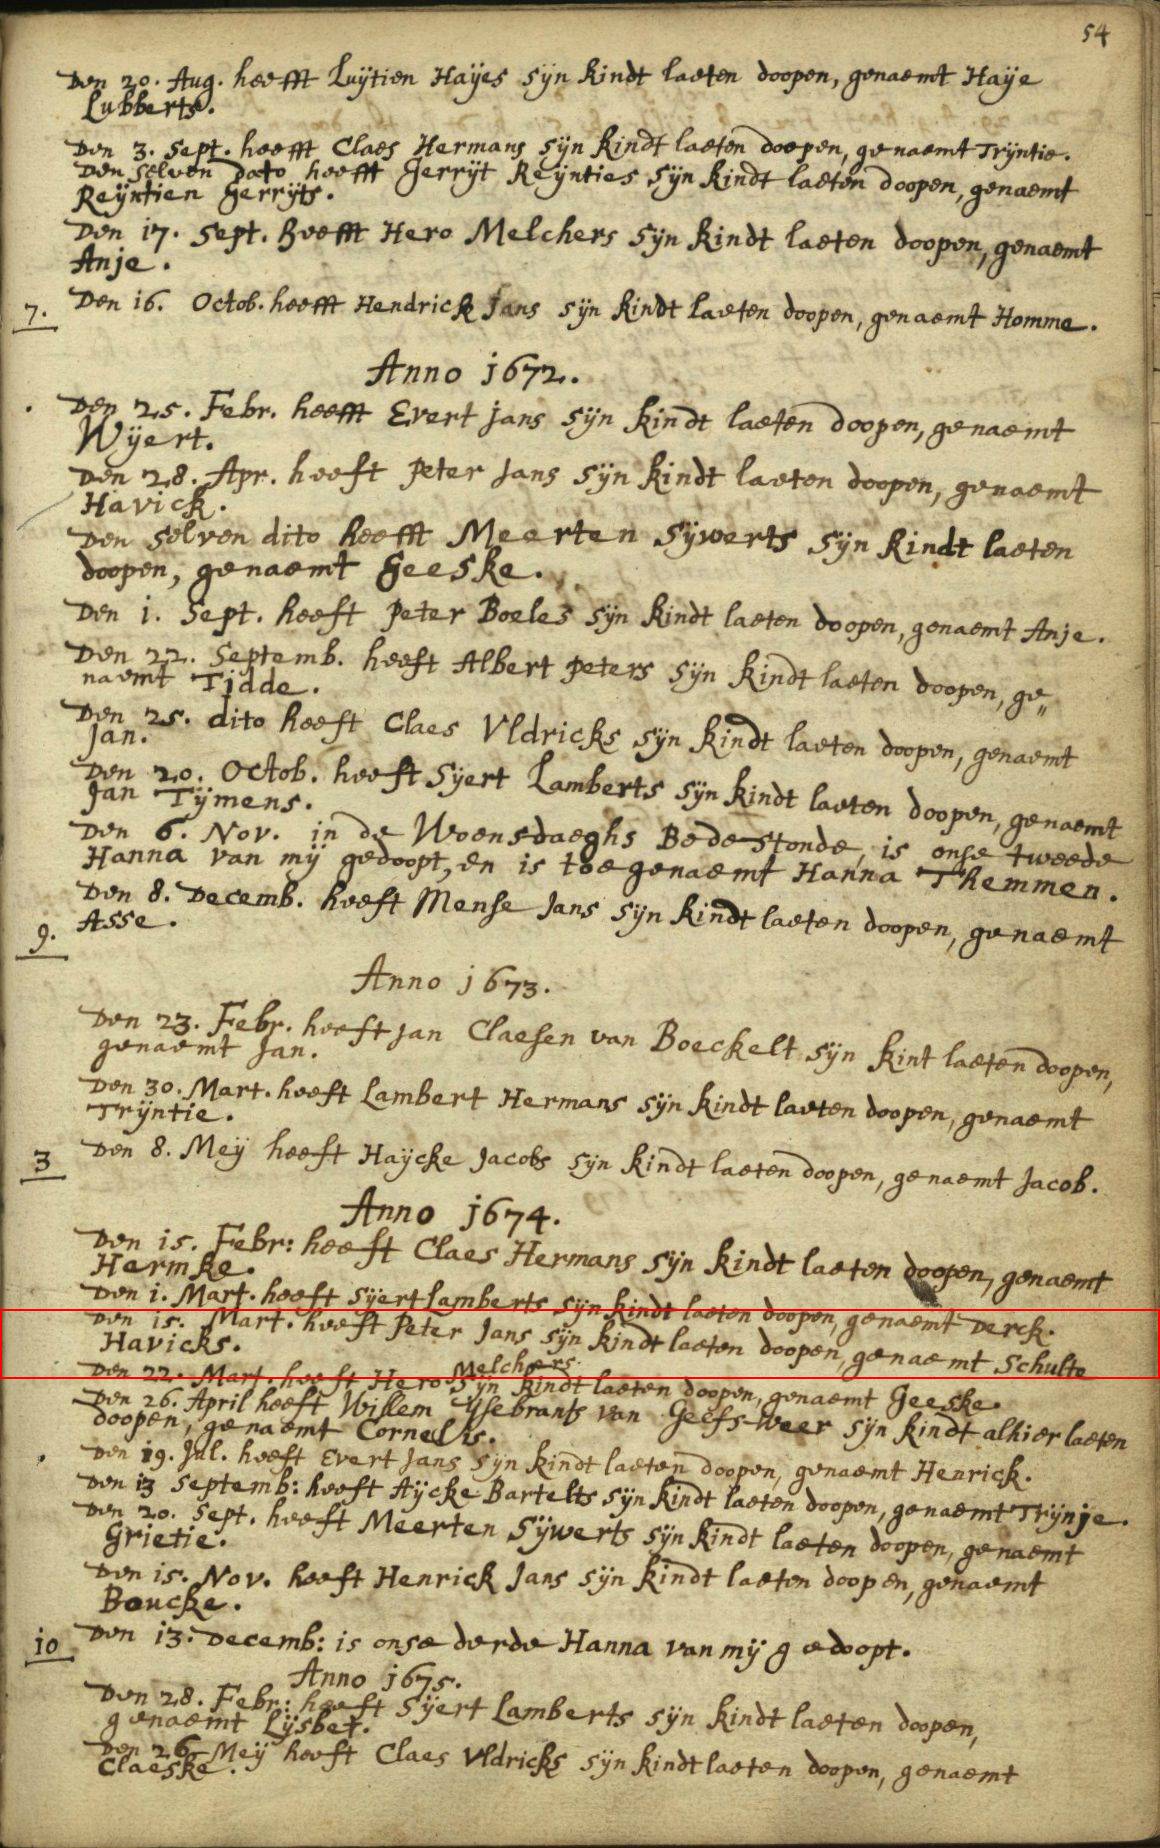 54
Den 20. Aug. heefft Luÿtien Haÿes sÿn kindt laeten doopen, genaemt Haÿe
Lubberts.
Den 3. Sept. heefft Claes Hermans sÿn kindt laeten doopen, genaemt Trÿntie.
Den selven dato heefft Gerrÿt Reÿnties sÿn kindt laeten doopen, genaemt
Reÿntien Gerrÿts.
Den 17. Sept. heefft Hero Melchers sÿn kindt laeten doopen, genaemt
Anje.
7. Den 16. Octob. heefft Hendrick Jans sÿn kindt laeten doopen, genaemt Homme.
Anno 1672.
Den 25. Febr. heefft Evert Jans sÿn kindt laeten doopen, genaemt
Wÿert.
Den 28. Apr. heeft Peter Jans sÿn kindt laeten doopen, genaemt
Havick.
Den selven dito heefft Meerten Sÿwerts sÿn kindt laeten
doopen, genaemt Geeske.
Den 1. Sept. heeft Peter Boeles sÿn kindt laeten doopen, genaemt Anje.
Den 22. Septemb. heeft Albert Peters sÿn kindt laeten doopen, ge„
naemt Tjdde.
Den 25. dito heeft Claes Vldricks sÿn kindt laeten doopen, genaemt
Jan.
Den 20. Octob. heeft Sÿert Lamberts sÿn kindt laeten doopen, genaemt
Jan Tÿmens.
Den 6. Nov. in de Woensdaeghs Bedestonde, is onse tweede
Hanna van mÿ gedoopt, en is toegenaemt Hanna Themmen.
Den 8. Decemb. heeft Mense Jans sÿn kindt laeten doopen, genaemt
9. Asse.
Anno 1673.
Den 23. Febr. heeft Jan Claesen van Boeckelt sÿn kint laeten doopen,
genaemt Jan.
Den 30. Mart. heeft Lambert Hermans sÿn kindt laeten doopen, genaemt
Trÿntie.
3 Den 8. Meÿ heeft Haÿcke Jacobs sÿn kindt laeten doopen, genaemt Jacob.
Anno 1674.
Den 15. Febr: heeft Claes Hermans sÿn kindt laeten doopen, genaemt
Hermke.
Den 1. Mart. heeft Sÿert Lamberts sÿn kindt laeten doopen, genaemt Derck.
Den 15. Mart. heeft Peter Jans sÿn kindt laeten doopen, genaemt Schulto
Havicks.
Melchers
Den 22. Mart. heeft Hero sÿn kindt laeten doopen, genaemt Geeske.
Den 26. April heeft Willem Ysebrants van Geefsweer sÿn kindt alhier laeten
doopen, genaemt Cornelis.
Den 19. Jul. heeft Evert Jans sÿn kindt laeten doopen, genaemt Henrick.
Den 13 Septemb: heeft Aÿcke Bartelts sÿn kindt laeten doopen, genaemt Trÿnje.
Den 20. Sept. heeft Meerten Sÿwerts sÿn kindt laeten doopen, genaemt
Grietie.
Den 15. Nov. heeft Henrick Jans sÿn kindt laeten doopen, genaemt
Boucke.
10 Den 13. Decemb: is onse derde Hanna van mÿ gedoopt.
Anno 1675.
Den 28. Febr: heeft Sÿert Lamberts sÿn kindt laeten doopen,
genaemt Lÿsbet.
Den 26 Meÿ heeft Claes Vldricks sÿn kindt laeten doopen, genaemt
Claeske.